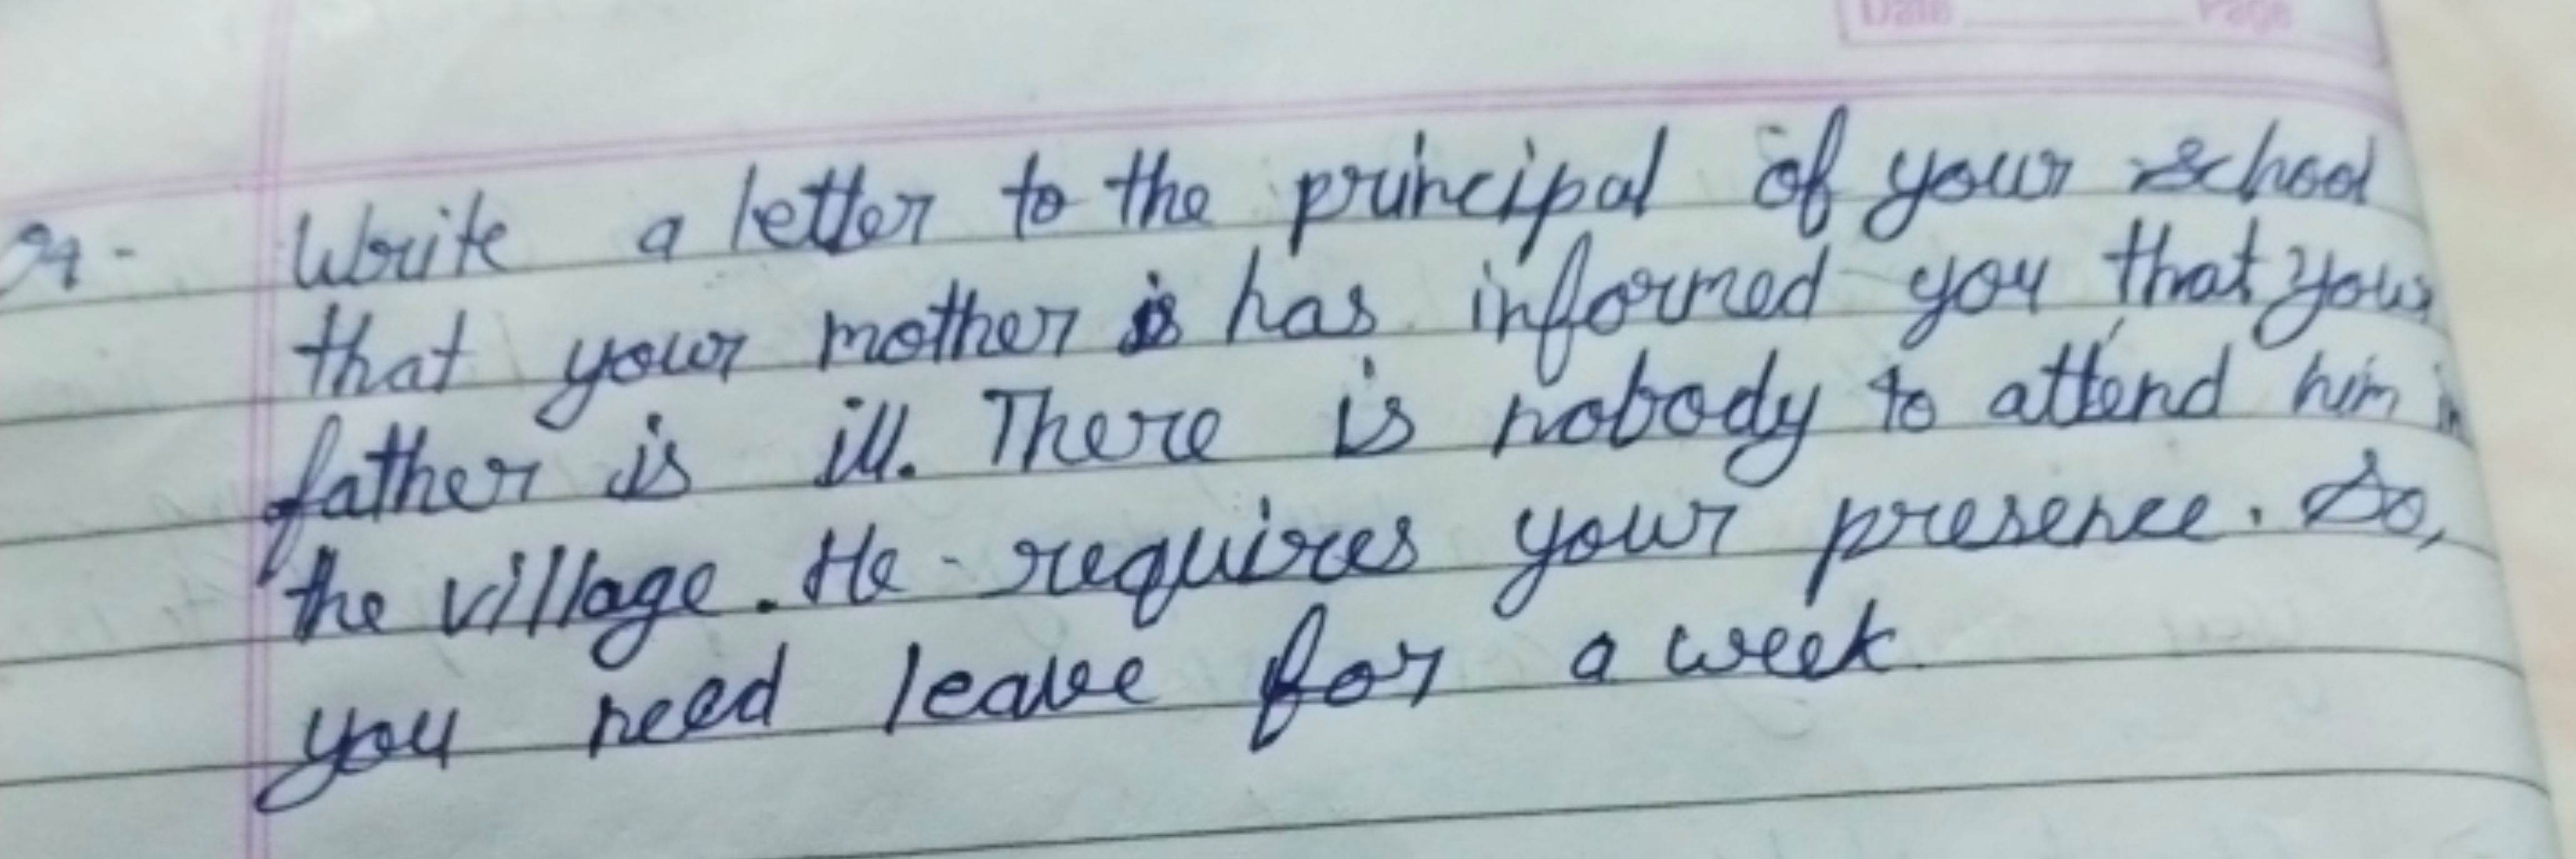 Date Page
Write a letter to the principal of your school
that your mother has informed you that your
father is ill. There is nobody to attend him in
the village. He requires your presence. So,
you need leave for a week